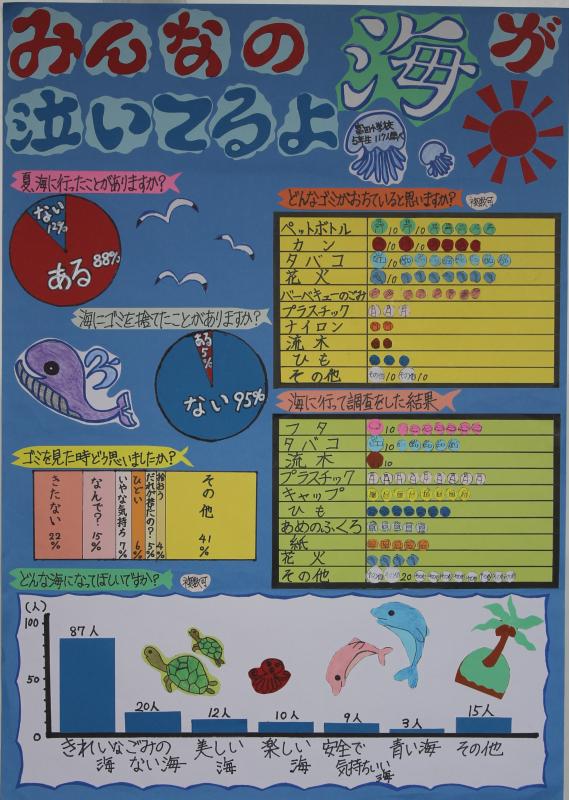 みんなの海が
泣いてるよ
5年生 117人に聞く
夏、海に行ったことがありますか?
ない
12%
ある 88%
海にゴミを捨てたことがありますか?
ある
5%
ない 95%
ゴミを見た時どう思いましたか?
きたない 22%
なんで? 15%
いやな気持ち 7%
ひどい 6%
だれが捨てたの? 5%
拾おう 4%
その他 41%
どんなゴミがおちていると思いますか?
複数可
ペットボトル 10 10
カン 10 10
タバコ 10
花火 10
バーベキューのごみ
プラスチック
ナイロン
流木
ひも
その他 その他 10 その他 10
海に行って調査をした結果
フタ 10
タバコ 10
流木 10
プラスチック
キャップ
ひも
あめのふくろ
紙
花火
その他 20
どんな海になってほしいですか?
複数可
(人)
100
50
0
87人
20人
12人
10人
9人
3人
15人
きれいな海
ごみのない海
美しい海
楽しい海
安全で気持ちいい海
青い海
その他